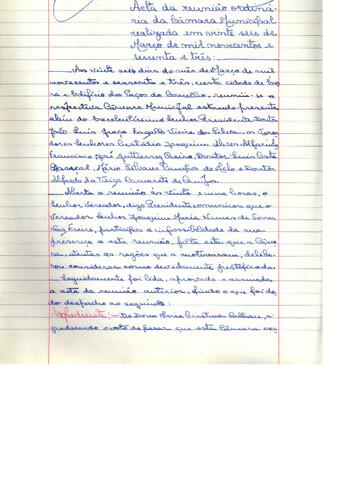 Acta da reunião ordiná-
ria da Câmara Municipal
realizada em vinte seis de
Março de mil novecentos e
sessenta e três:
Aos vinte seis dias do mês de Março de mil
novecentos e sessenta e três, nesta cidade de
e Edifício dos Paços do Concelho, reuniu-se a
respectiva Câmara Municipal estando presente
além do Excelentíssimo Senhor Presidente Doutor
João Luís Vieira da Silva, os Verea-
dores Senhores Custódio Joaquim
Francisco José Doutor Luís
Mário Silvano de Melo e Doutor
Alfredo da Veiga
Aberta a reunião às vinte e uma horas, o
Senhor Vereador, digo Presidente comunicou que o
Vereador Senhor Joaquim Maria Nunes de
Vaz Freire, participou a impossibilidade da sua
presença a esta reunião, falta esta que a Câma-
ra, atentas as razões que a motivaram, delibe-
rou considerar como devidamente justificada.
Seguidamente foi lida, aprovada e assinada
a acta da reunião anterior, findo o que foi da-
do despacho ao seguinte:
Expediente:- De Dona Maria Cristina a-
gradecendo o voto de pesar que esta Câmara